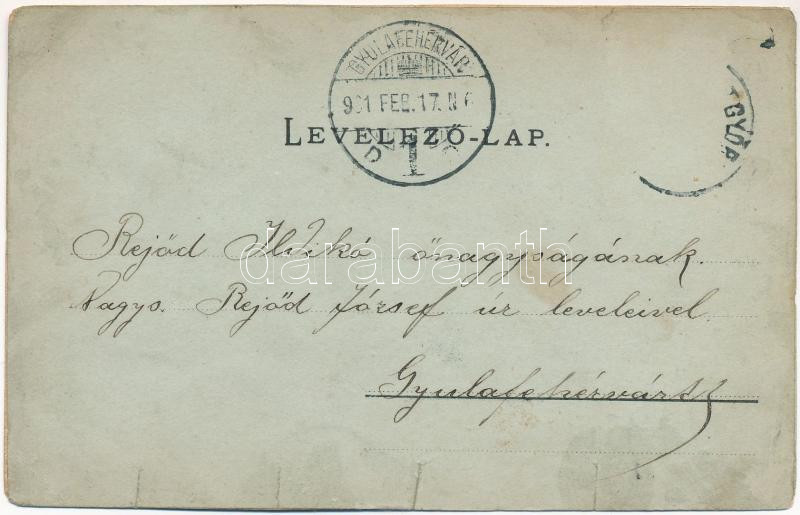 GYULAFEHÉRVÁR
901 FEB. 17. N 6
1
GYŐR
LEVELEZŐ-LAP.
Rejőd Ilikó őnagyságának.
Nagys. Rejőd József úr leveleivel
Gyulafehérvártt
darabanth